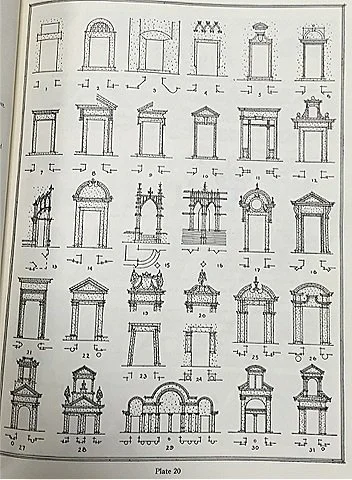 1 2 3 4 5 6
7 8 9 10 11 12
13 14 15 16 17 18
19 20
21 22 23 24 25 26
27 28 29 30 31
Plate 20